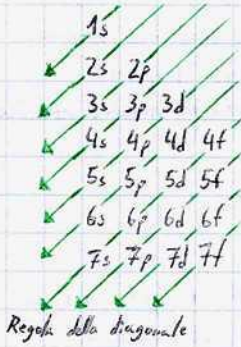 1s
2s 2p
3s 3p 3d
4s 4p 4d 4f
5s 5p 5d 5f
6s 6p 6d 6f
7s 7p 7d 7f
Regola della diagonale